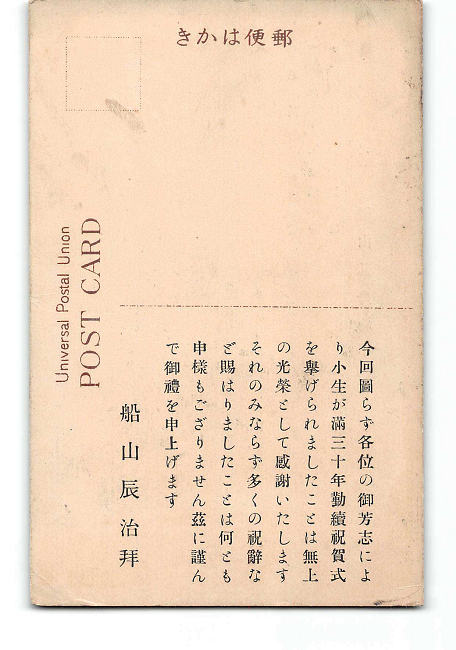 きかは便郵
Universal Postal Union
POST CARD
今回圖らず各位の御芳志によ
り小生が滿三十年勤續祝賀式
を擧げられましたことは無上
の光榮として感謝いたします
それのみならず多くの祝辭な
ど賜はりましたことは何とも
申様もござりません茲に謹ん
で御禮を申上げます
船山辰治拜